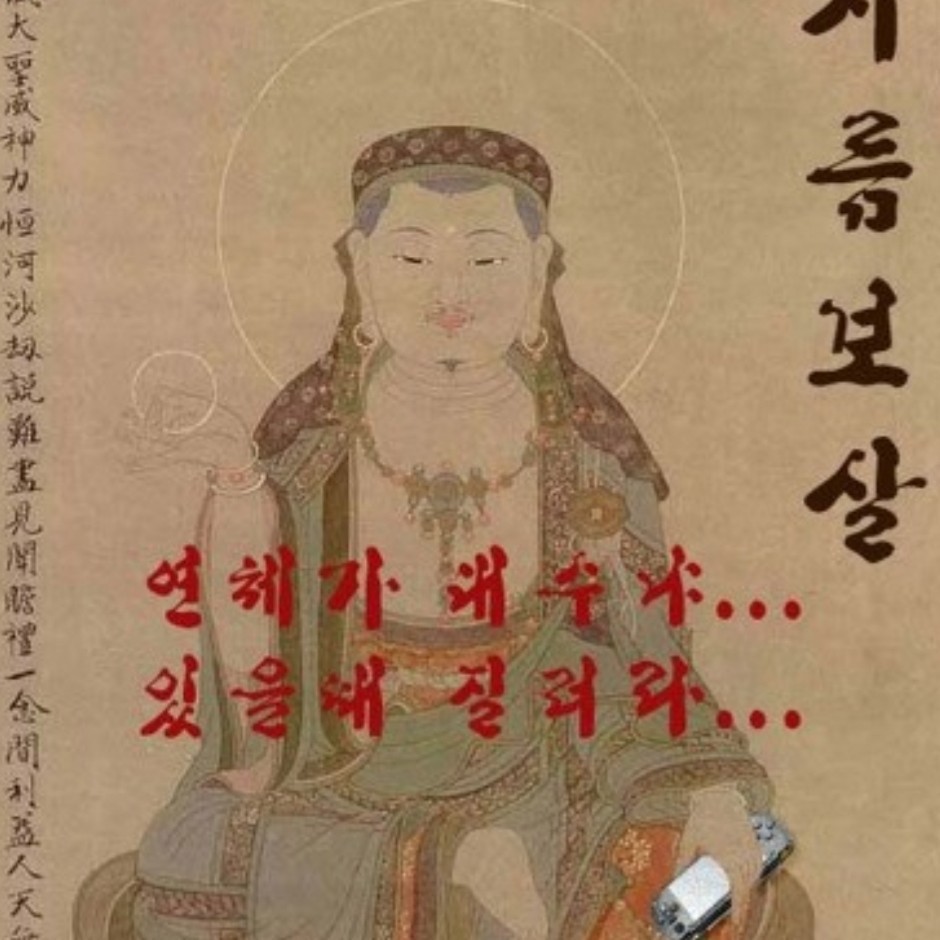 지름보살
연체가 대수냐...
있을때 질러라...
大聖威神力恒河沙劫説難盡見聞瞻禮一念間利益人天